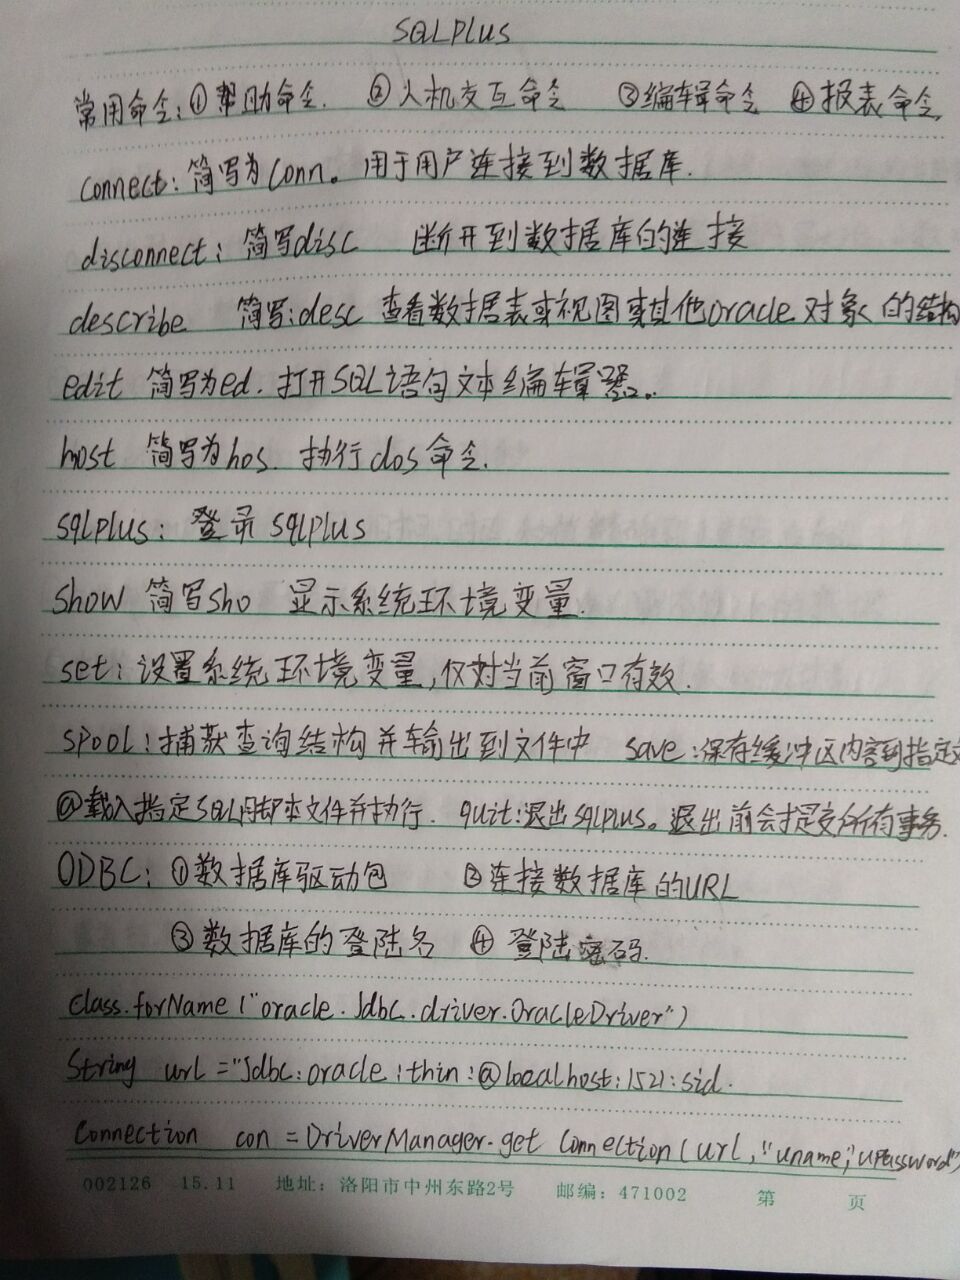 SQLPlus
常用命令:①帮助命令. ②人机交互命令 ③编辑命令 ④报表命令
connect: 简写为conn。用于用户连接到数据库.
disconnect: 简写disc 断开到数据库的连接
describe 简写:desc 查看数据表或视图或其他oracle对象的结构
edit 简写为ed. 打开SQL语句文本编辑器。
host 简写为hos. 执行dos命令.
sqlplus: 登录sqlplus
show 简写sho 显示系统环境变量.
set: 设置系统环境变量,仅对当前窗口有效.
spool:捕获查询结构并输出到文件中 save:保存缓冲区内容到指定文
@载入指定SQL脚本文件并执行. quit:退出sqlplus。退出前会提交所有事务.
ODBC: ①数据库驱动包 ②连接数据库的URL
③数据库的登陆名 ④登陆密码.
class.forName("oracle.Jdbc.driver.OracleDriver")
String url ="Jdbc:oracle:thin:@localhost:1521:sid.
Connection con =DriverManager.get Connection(url,"uname","upassword")
002126 15.11 地址:洛阳市中州东路2号 邮编:471002 第 页